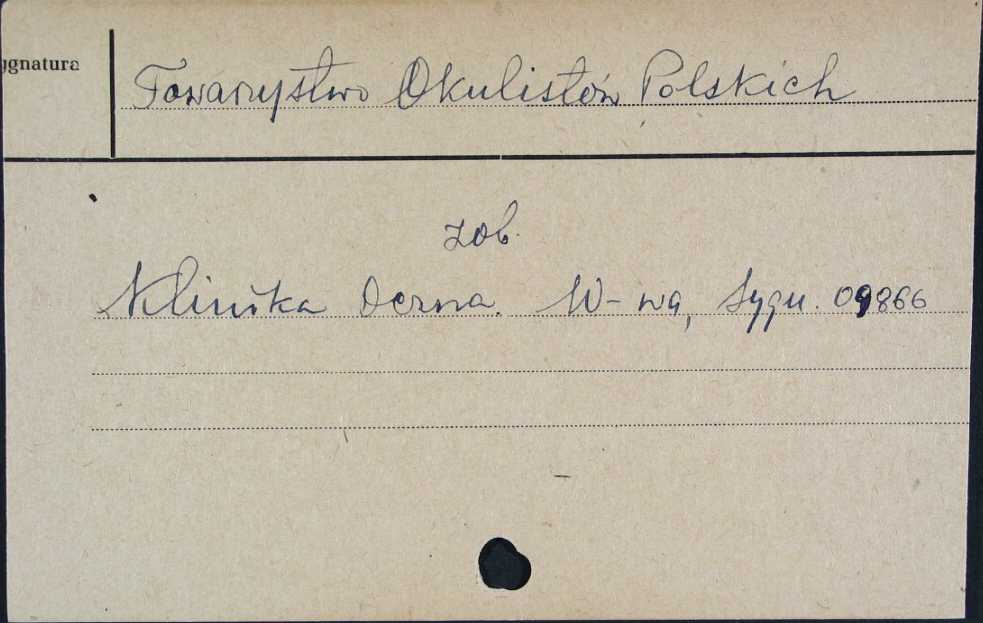 ygnatura
Towarzystwo Okulistów Polskich
zob.
Klinika Oczna. W-wa, Sygn. 09866